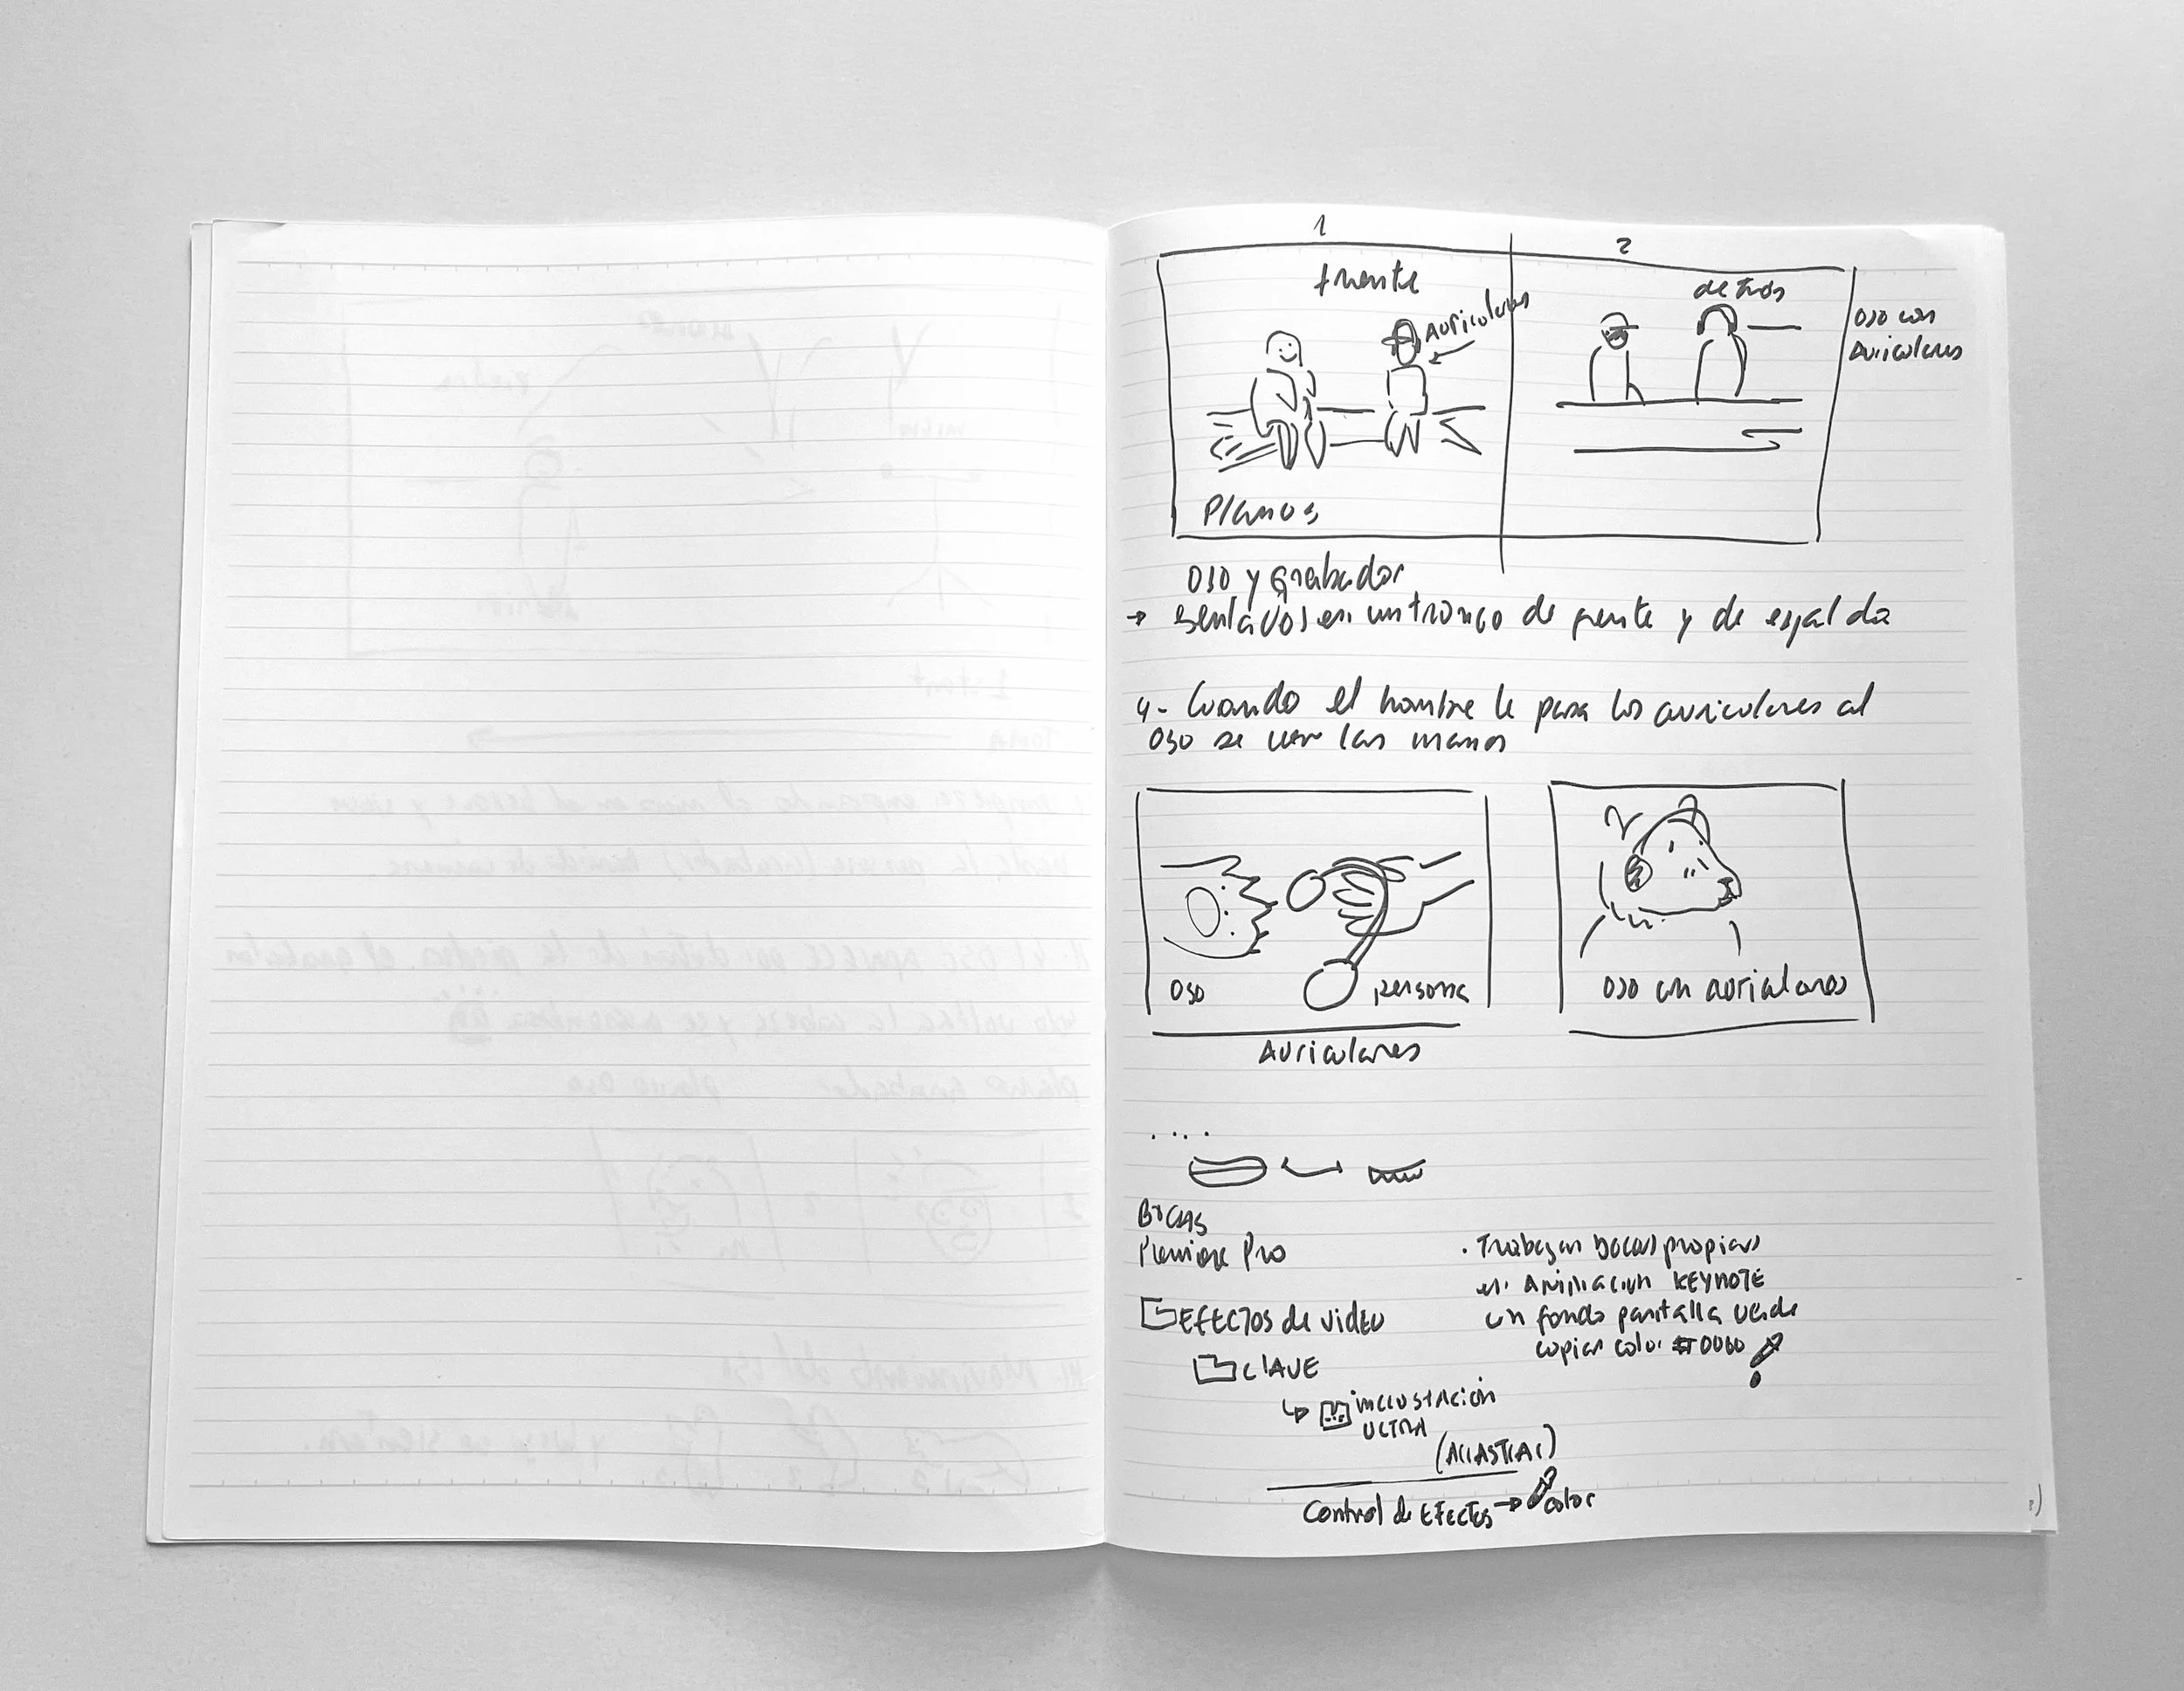 1
2
frente
Auriculares
detrás
oso con
Auriculares
Planos
oso y grabador
→ sentados en un tronco de frente y de espalda
4- Cuando el hombre le pasa los auriculares al
oso se ven las manos
oso
persona
Auriculares
oso con auriculares
....
BOCAS
Premiere Pro
EFECTOS de video
CLAVE
↳ incrustación
ULTRA
(ARRASTRAR)
Control de EFECTOS → color
• Trabajan bocas propias
en Animación KEYNOTE
con fondo pantalla verde
copiar color